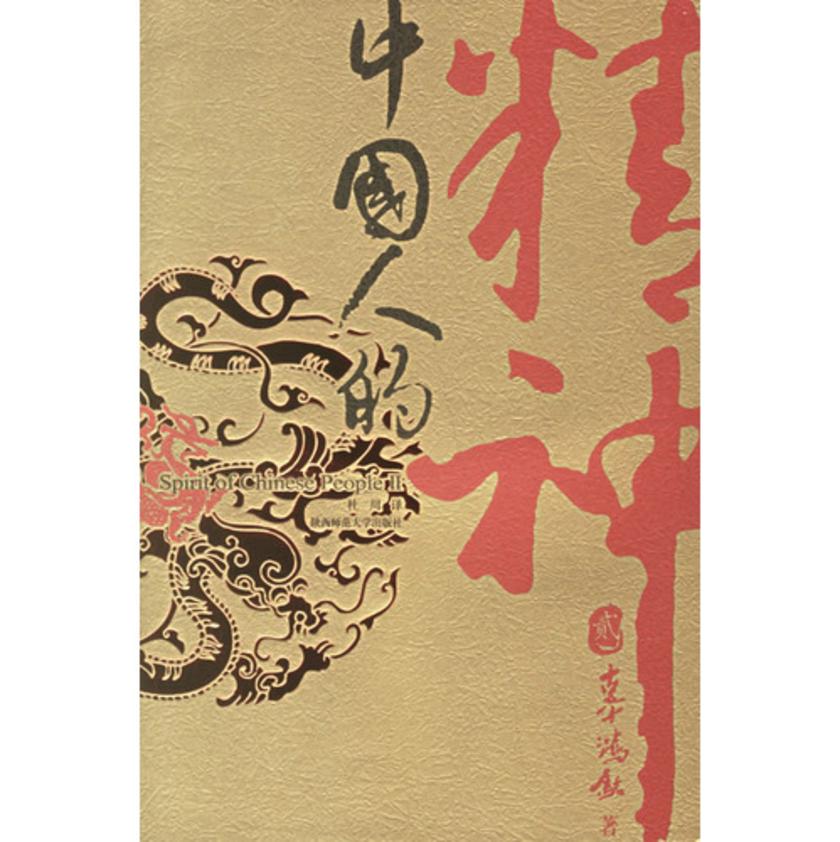 中國人的
精神
Spirit of Chinese People II
杜 川 译
陕西师范大学出版社
贰
辜鸿銘 著